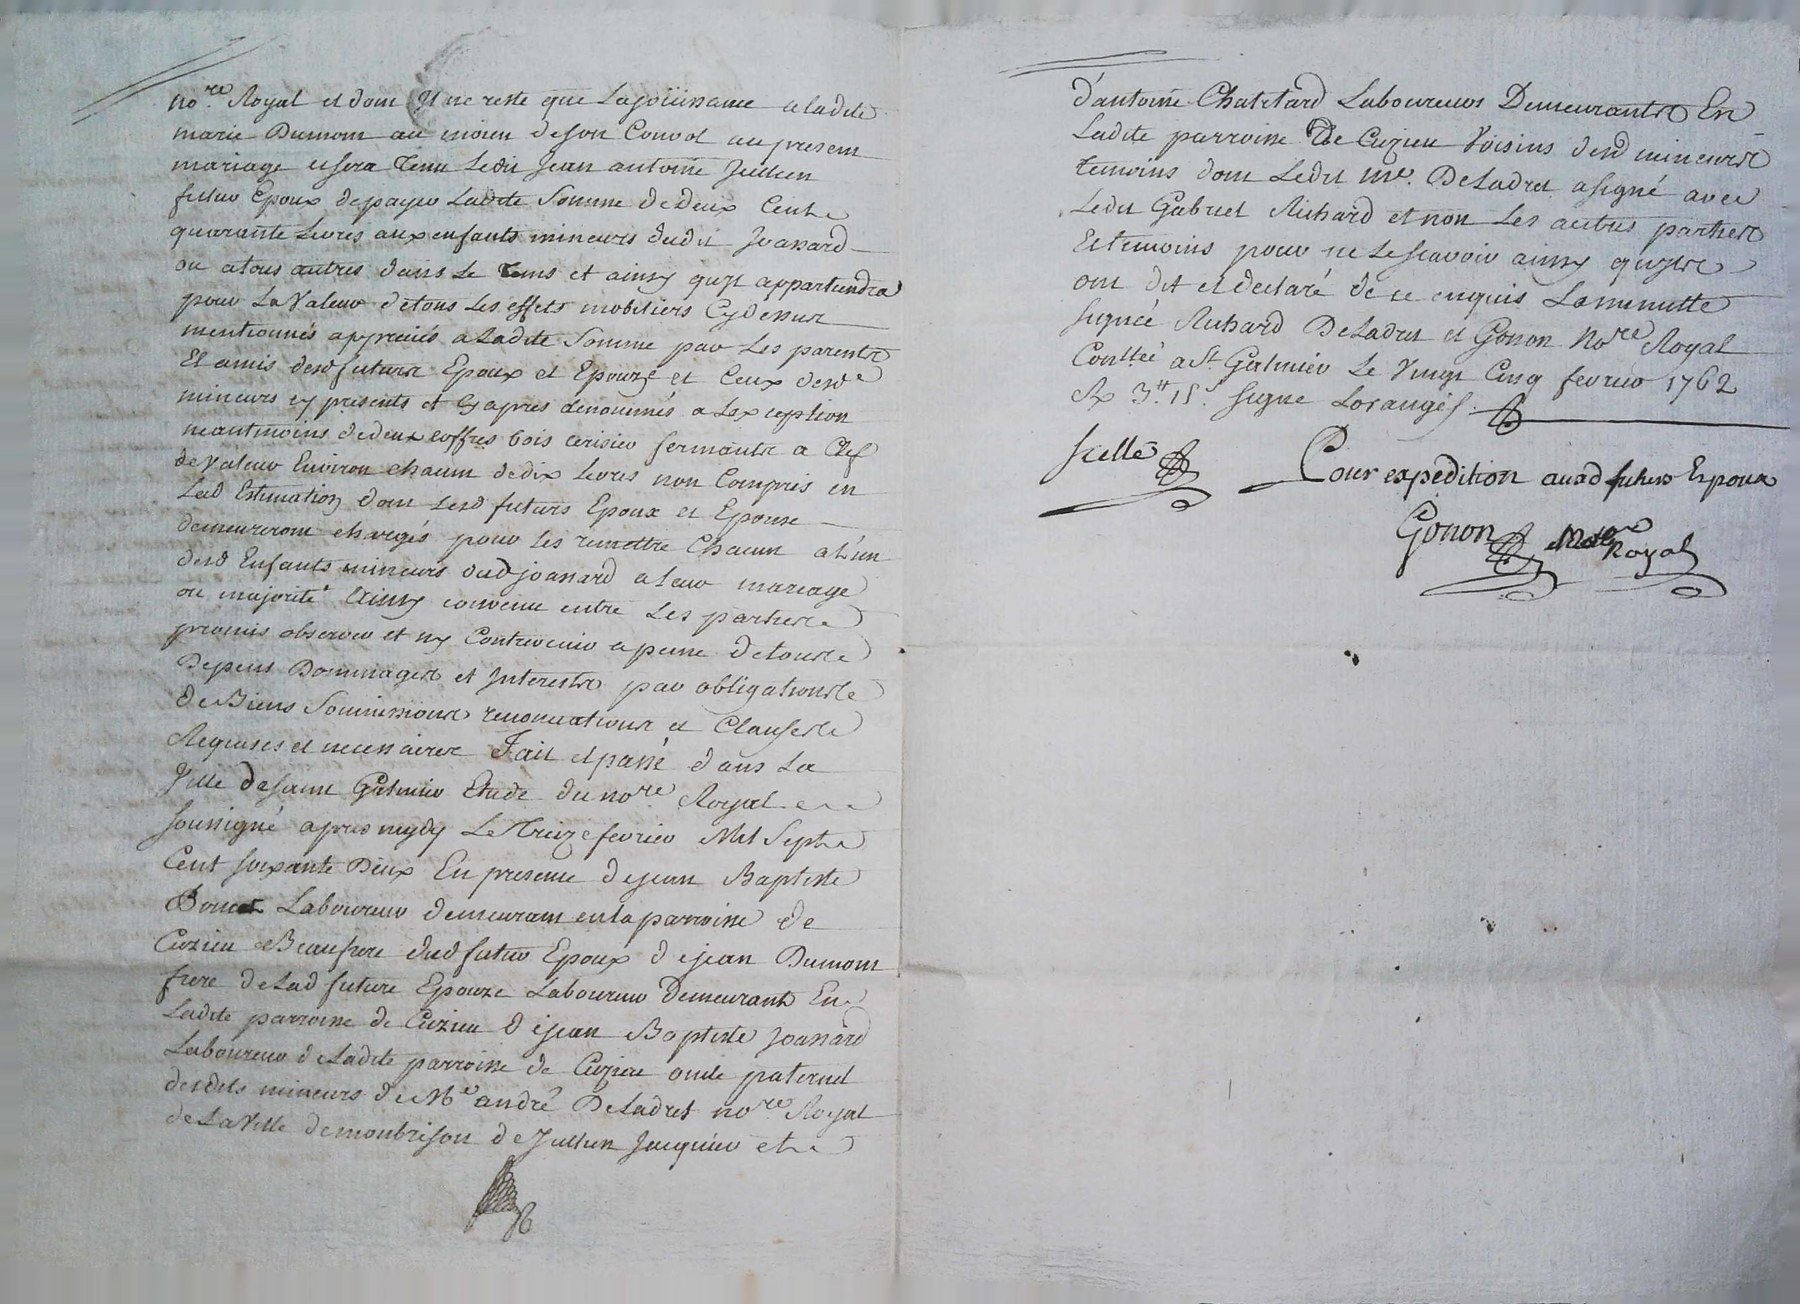 no.re Royal et dont Il ne reste que La joüissance a ladite
marie Dumont au moien de son Convol au present
mariage et sera tenu Ledit Jean antoine Jullien
futur Epoux de payer Ladite Somme de Deux Cent
quarante Livres aux enfants mineurs dudit Joanard
ou a tous autres dans Le tems et ainsy qu'jl appartiendra
pour La Valeur de tous Les effets mobiliers Cy dessus
mentionnés appreciés a Ladite Somme par Les parents
Et amis desd futurs Epoux et Epouze et Ceux desd
mineurs cy presents et Cy apres denommés a Lexception
neantmoins de deux coffres bois cerisier fermants a Clef
de Valeur Environ chacun de dix Livres non Compris en
Lad Estimation dont Lesd futurs Epoux et Epouse
demeureront chargés pour Les remettre Chacun a L'un
desd Enfants mineurs dud joanard a leur mariage
ou majorité Ainsy convenu entre Les parties
promis observer et ny Contrevenir a peine de tous
Depens Dommages et Interests par obligations
de Biens Soumissions renonciations et Clauses
Requises et necessaires Fait et passé dans La
Ville de saint Galmier Etude du no.re Royal
soussigné apres mydy Le Treize fevrier Mil Sept
Cent soixante Deux En presence de jean Baptiste
Laboureur demeurant en la parroisse de
Cuzieu Beaufrere dud futur Epoux de jean Dumont
frere de Lad future Epouze Laboureur Demeurant En
Ladite parroisse de Cuzieu de jean Baptiste Joanard
Laboureur de Ladite parroisse de Cuzieu oncle paternel
desdits mineurs de Me andré DeLadret no.re Royal
de La Ville de montbrison de Jullien Jacquier et
d'antoine Chatelard Laboureurs Demeurants En
Ladite parroisse De Cuzieu Voisins desd mineurs
temoins dont Ledit me. DeLadret a signé avec
Ledit Gabriel Richard et non Les autres parties
Et temoins pour ne Le scavoir ainsy qu'jls
ont dit et declaré de ce enquis La minutte
signée Richard DeLadret et Gonon No.re Royal
Conllée a St Galmier Le Vingt Cinq fevrier 1762
Rx 3tt 15s. signé Loranges
scellé
Pour expedition auxd futurs Epoux
Gonon Notre
Royal